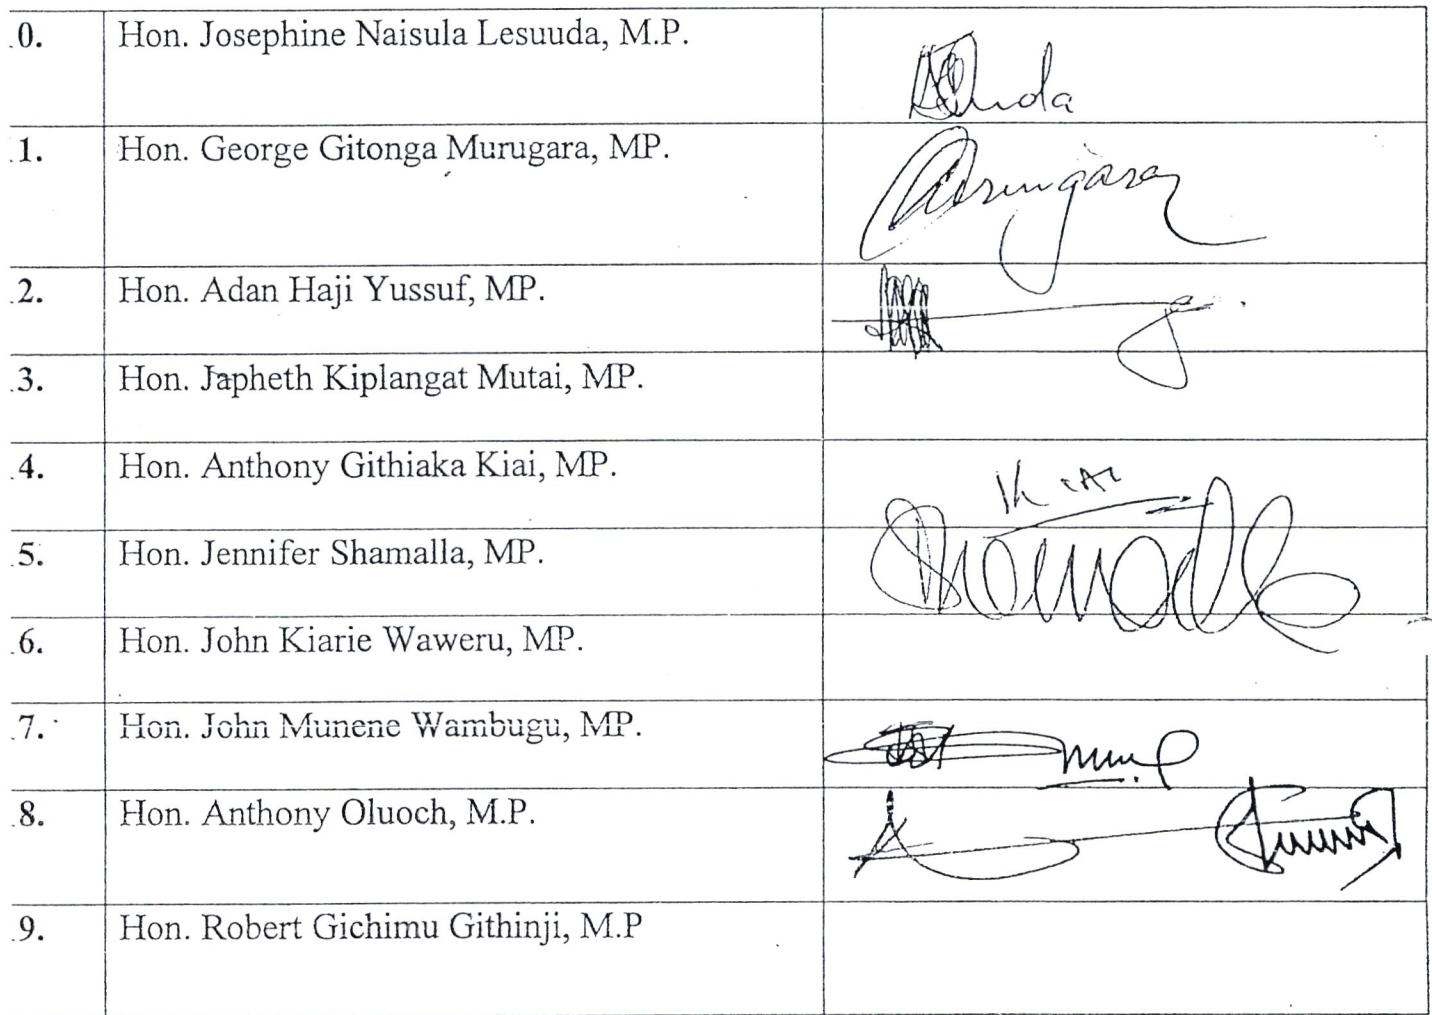 .0. Hon. Josephine Naisula Lesuuda, M.P.
.1. Hon. George Gitonga Murugara, MP.
.2. Hon. Adan Haji Yussuf, MP.
.3. Hon. Japheth Kiplangat Mutai, MP.
.4. Hon. Anthony Githiaka Kiai, MP. Kiai
.5. Hon. Jennifer Shamalla, MP.
.6. Hon. John Kiarie Waweru, MP.
.7. Hon. John Munene Wambugu, MP.
.8. Hon. Anthony Oluoch, M.P.
.9. Hon. Robert Gichimu Githinji, M.P